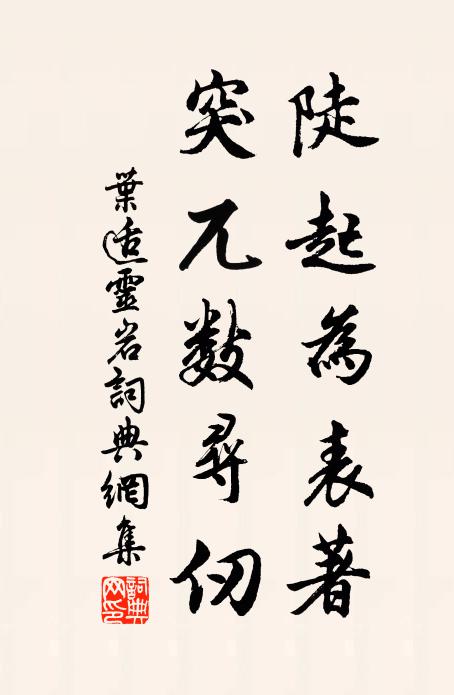 陡起為表著
突兀数尋仞
葉适靈岩詞典網集
詞典网印